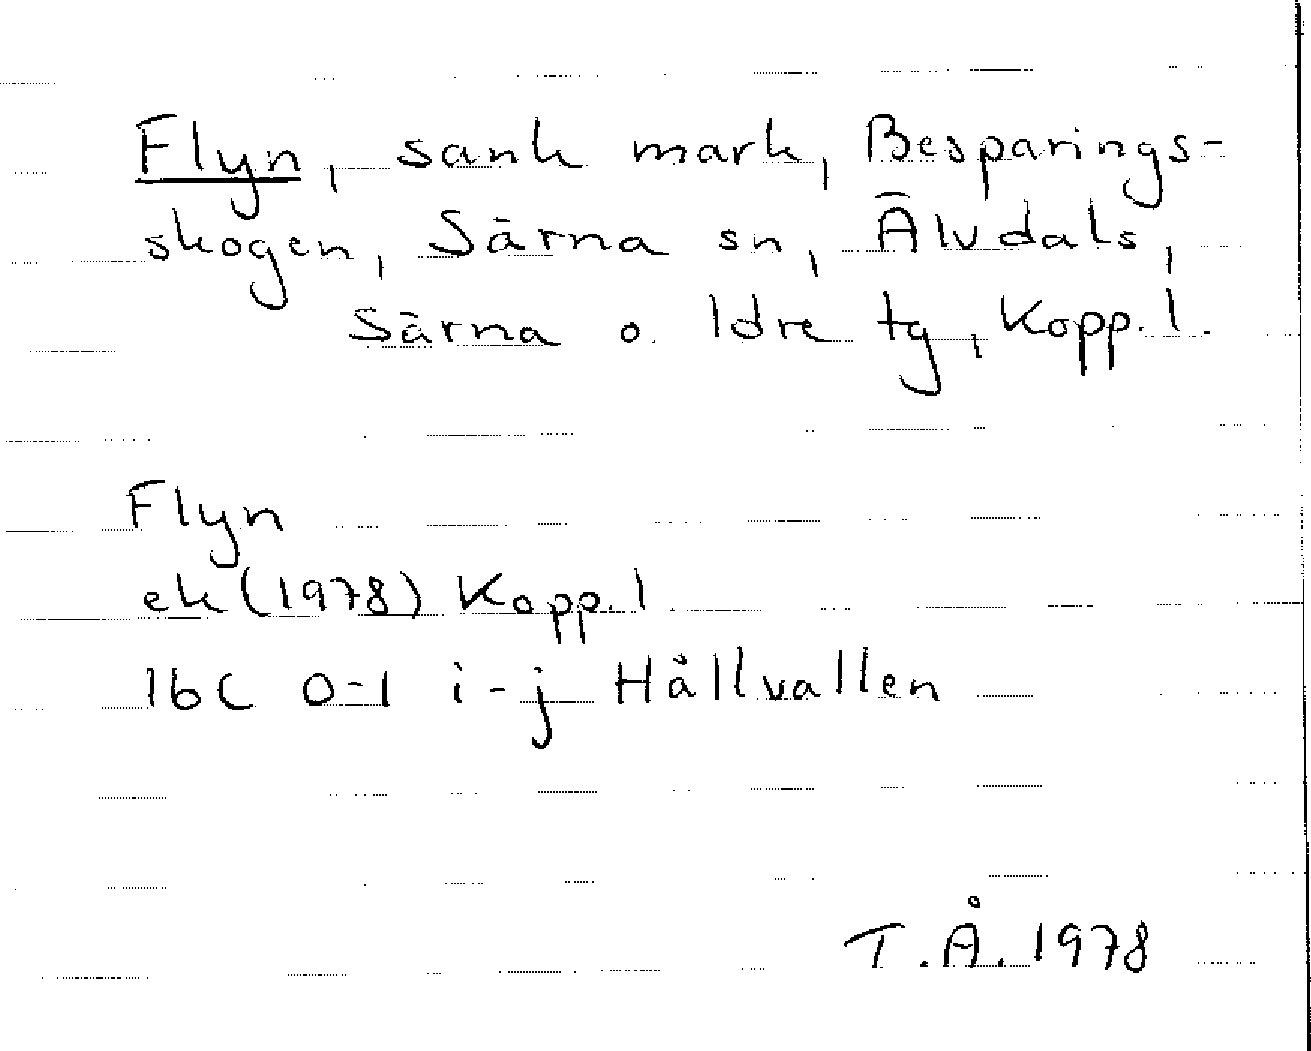 Flyn, sank mark, Besparings-
skogen, Särna sn, Älvdals,
Särna o. Idre tg, Kopp. l.
Flyn
ek (1978) Kopp. l
16C 0-1 i-j Hållvallen
T. Å. 1978